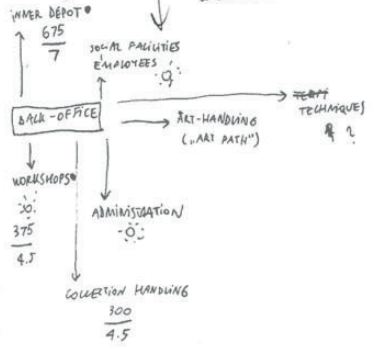 INNER DEPOT
675
7
SOCIAL FACILITIES
EMPLOYEES
BACK-OFFICE
TECHNIQUES
?
ART-HANDLING
("ART PATH")
WORKSHOPS
375
4.5
ADMINISTRATION
COLLECTION HANDLING
300
4.5